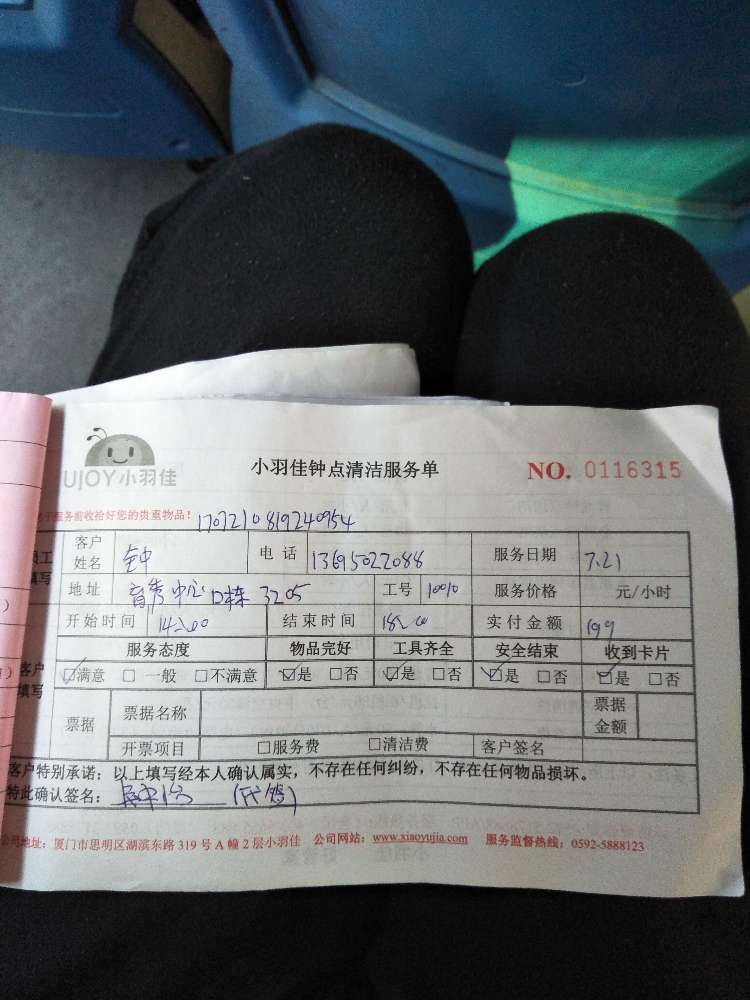 UJOY小羽佳
小羽佳钟点清洁服务单
NO. 0116315
于服务前收拾好您的贵重物品! 1707210819240954
员工填写
客户姓名 钟 电话 13695022088 服务日期 7.21
地址 育秀中心D栋 3205 工号 10010 服务价格 元/小时
开始时间 14:00 结束时间 18:00 实付金额 199
客户填写
服务态度 物品完好 工具齐全 安全结束 收到卡片
☑满意 □一般 □不满意 ☑是 □否 ☑是 □否 ☑是 □否 ☑是 □否
票据 票据名称 票据金额
开票项目 □服务费 □清洁费 客户签名
客户特别承诺：以上填写经本人确认属实，不存在任何纠纷，不存在任何物品损坏。
特此确认签名： (代签)
公司地址：厦门市思明区湖滨东路 319 号 A 幢 2 层小羽佳 公司网站：www.xiaoyujia.com 服务监督热线：0592-5888123